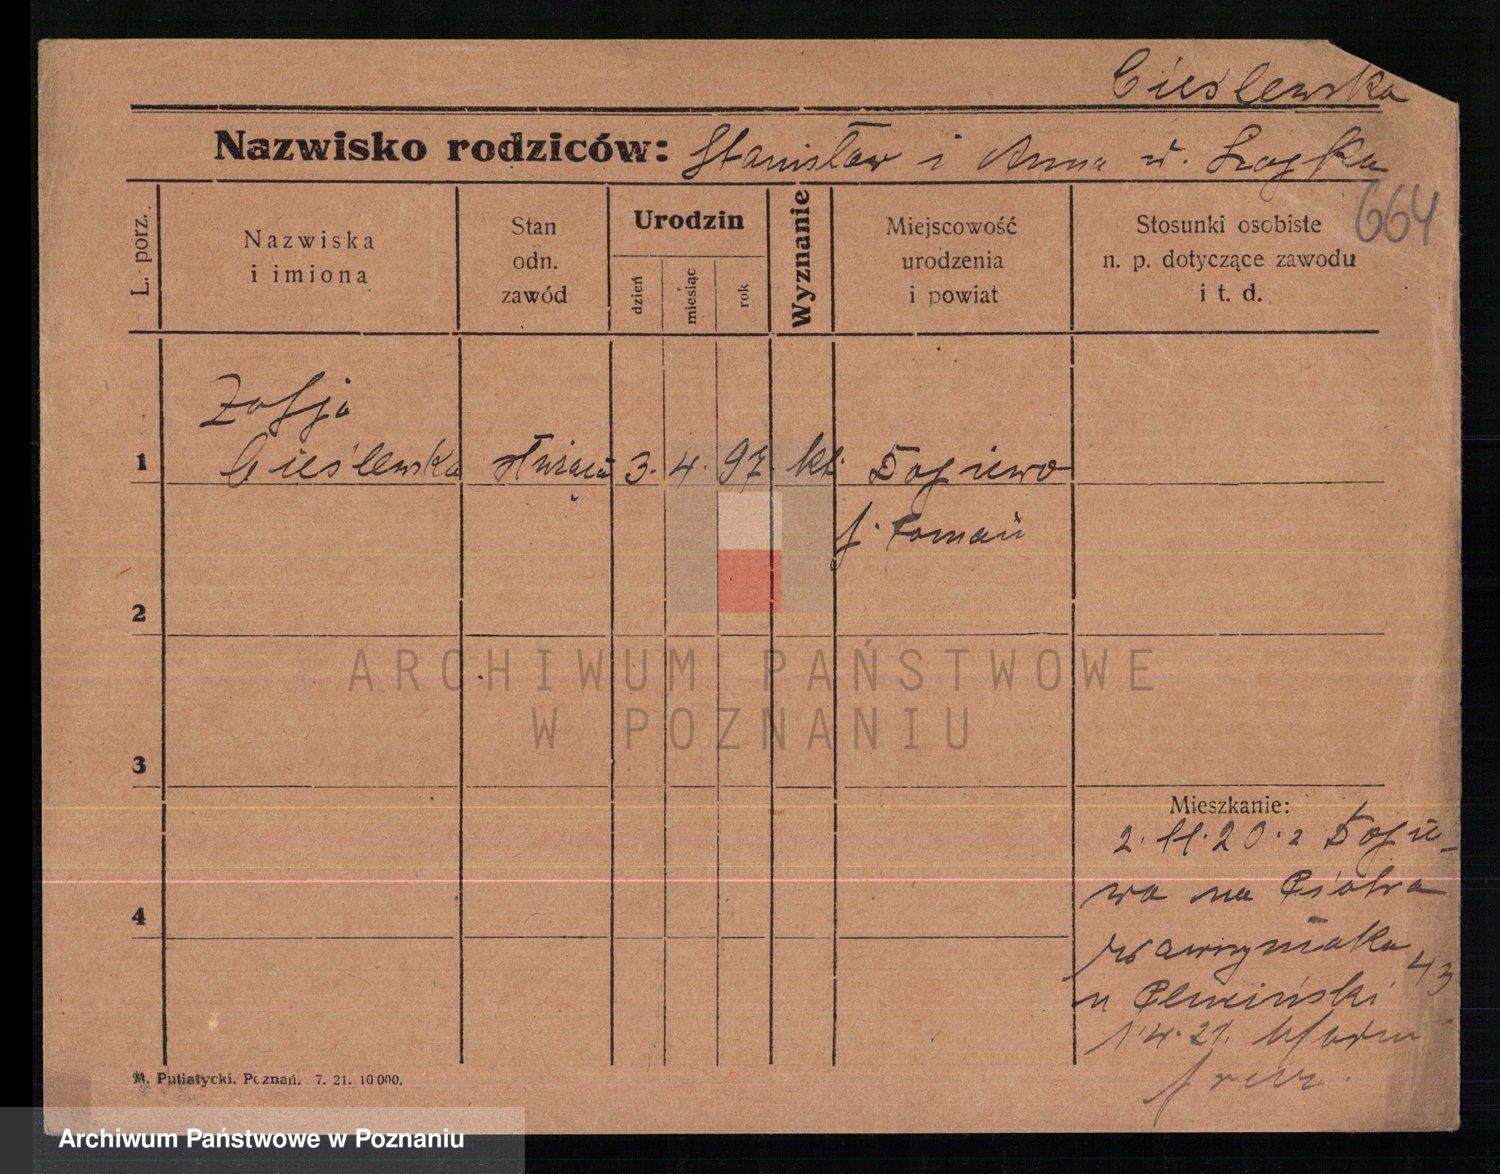 Cieślewska
Nazwisko rodziców: Stanisław i Anna
664
L. porz.
Nazwiska
i imiona
Stan
odn.
zawód
Urodzin
dzień
miesiąc
rok
Wyznanie
Miejscowość
urodzenia
i powiat
Stosunki osobiste
n. p. dotyczące zawodu
i t. d.
Zofja
1 Cieślewska służąca 3. 4. 97. kt. Dopiewo
2
ARCHIWUM PAŃSTWOWE
W POZNANIU
3
Mieszkanie:
2. 11. 20. z Dopie-
4 wo na Piotra
Wawrzyniaka 43
u
1 4. 21.
M. Putiatycki. Poznań. 7. 21. 10 000.
Archiwum Państwowe w Poznaniu